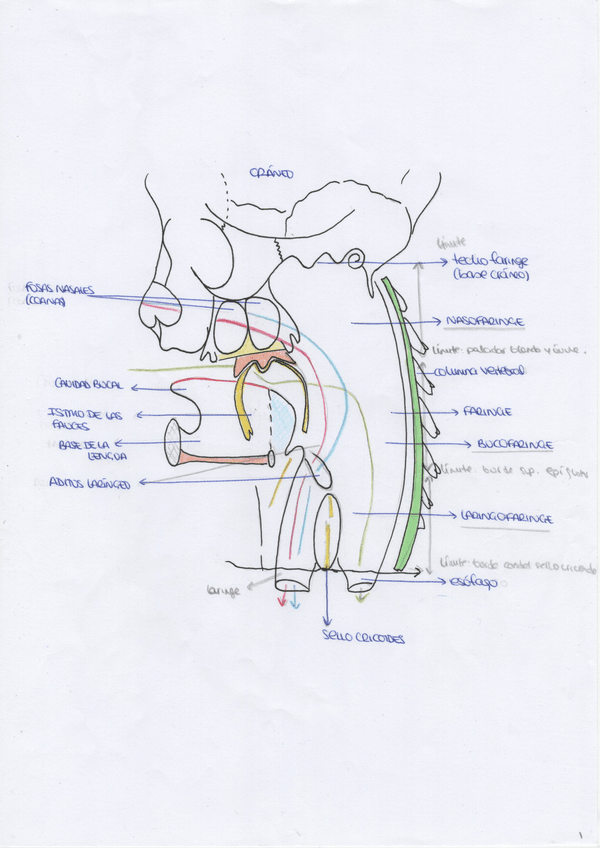 CRÁNEO
Límite
techo faringe
(base cráneo)
FOSAS NASALES
(COANAS)
NASOFARINGE
Límite: paladar blando y úvula.
columna vertebral
CAVIDAD BUCAL
ISTMO DE LAS
FAUCES
FARINGE
BASE DE LA
LENGUA
BUCOFARINGE
Límite: borde sup. epiglotis
ADITUS LARÍNGEO
LARINGOFARINGE
Límite: borde caudal sello cricoides
laringe
esófago
SELLO CRICOIDES
1